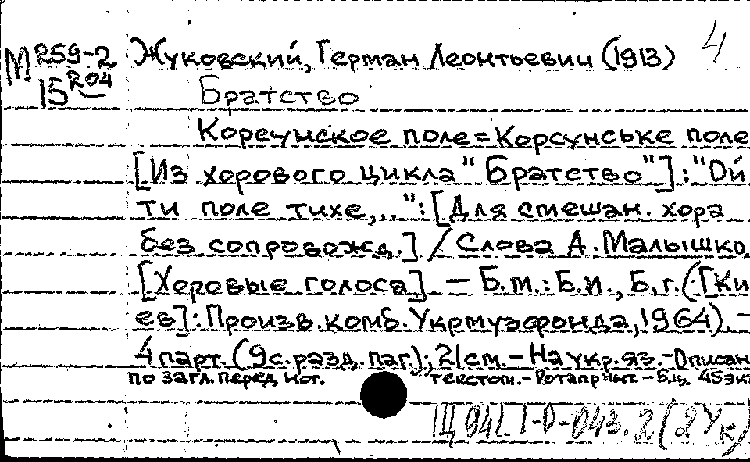 М 259-2 Жуковский, Герман Леонтьевич (1913) 4
15 204 Братство
Корсунское поле = Корсунське поле
[Из хорового цикла "Братство"]: "Ой
ти поле тихе,..": [Для смешан. хора
без сопровожд.] / Слова А. Малышко.
[Хоровые голоса]. — Б.м.: Б.и., Б.г. ([Ки
ев]: Произв. комб. Укрмузфонда, 1964). —
4 парт. (9 с. разд. паг.); 21 см. — На укр. яз. — Описан
по загл. перед нот. текстом. — Ротапринт. — Б.ц. 45 эк